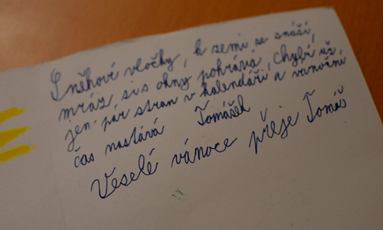 Sněhové vločky, k zemi se snáší,
mráz, si s okny pohrává, chybí už,
jen pár stran v kalendáři a vánoční
čas nastává Tomášek
Veselé vánoce přeje Tomáš